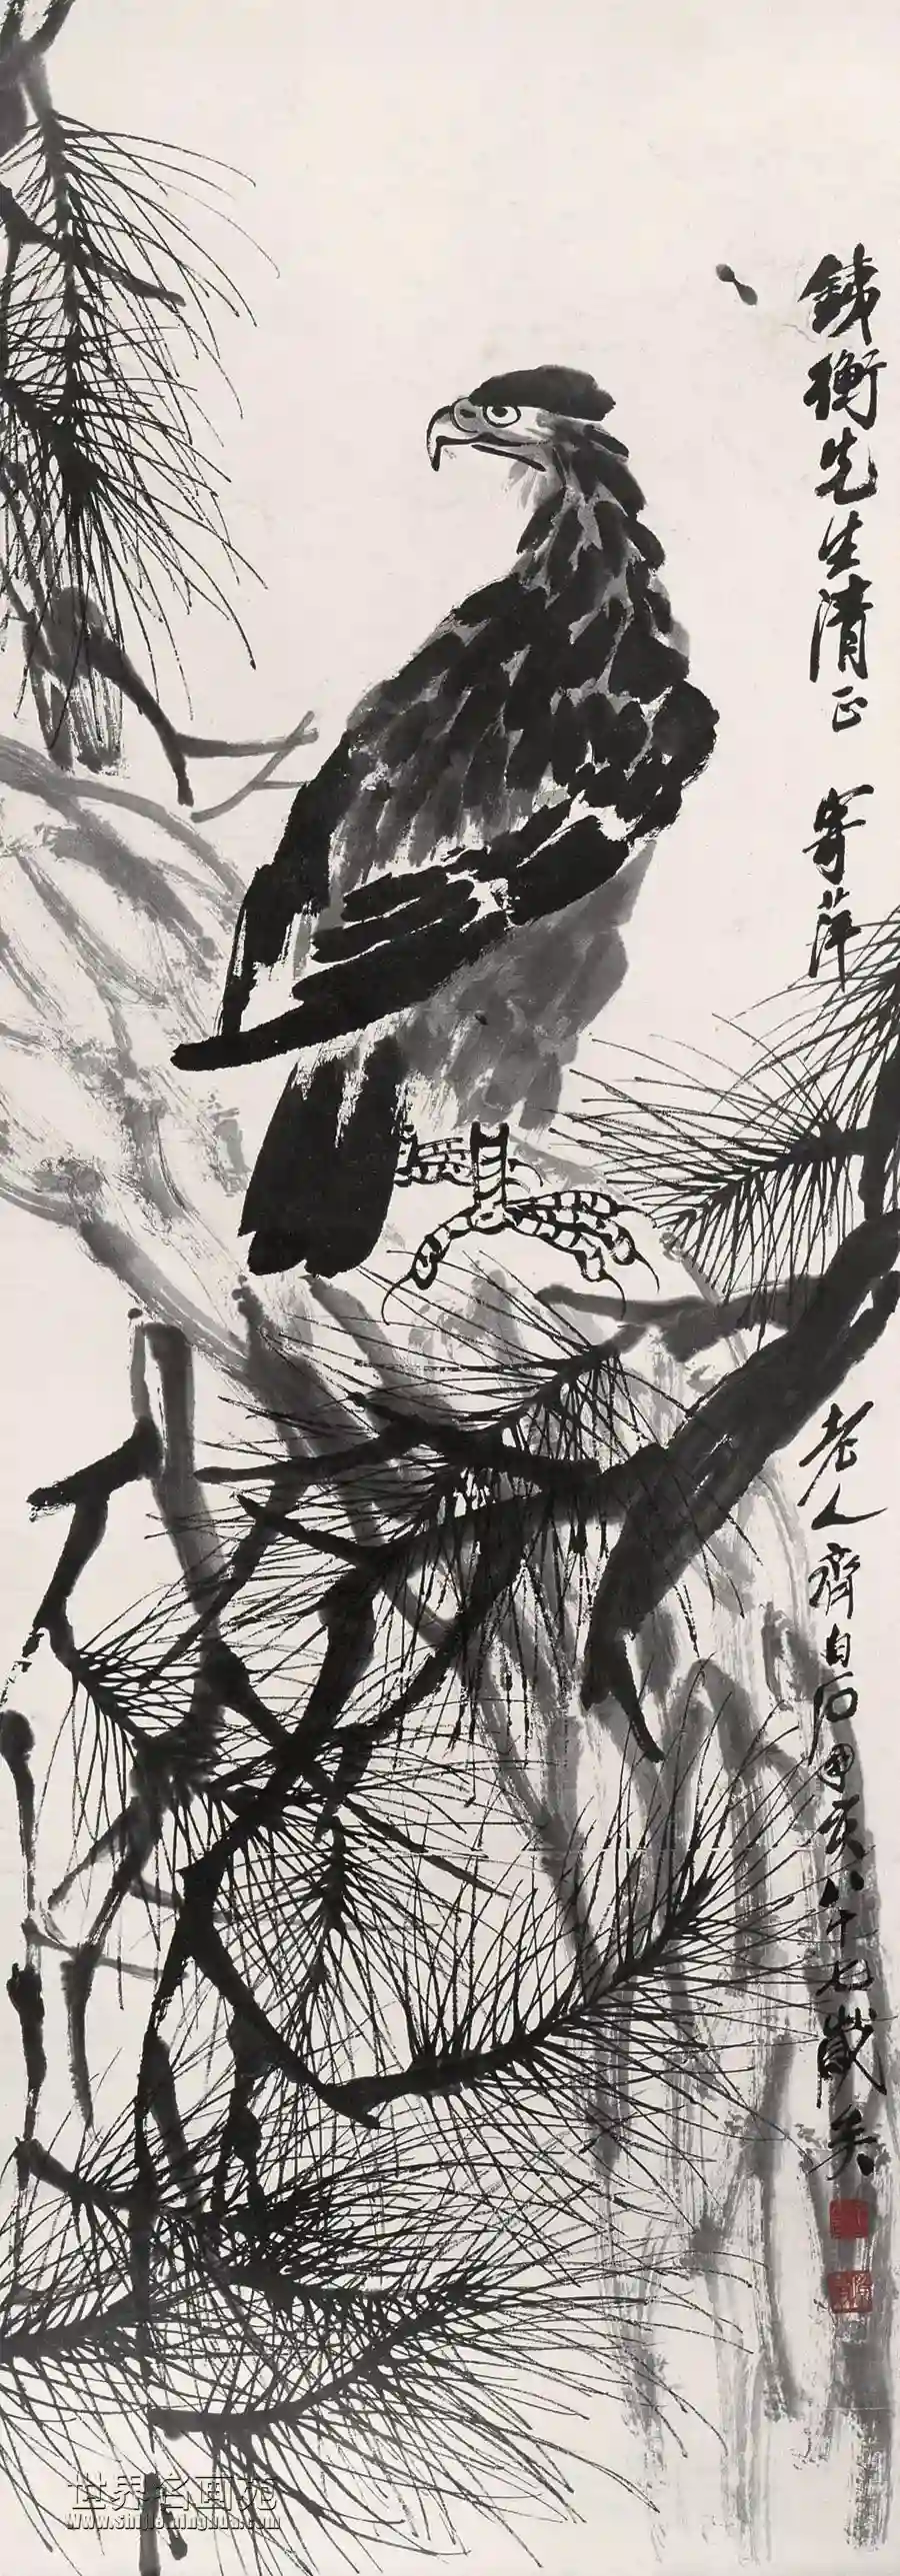 鐵衡先生清正 寄萍
老人齊白石丁亥八十七歲矣
世界名画苑
www.shijieminghua.com